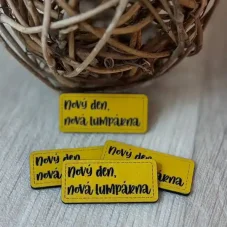 Nový den,
nová lumpárna
Nový den,
nová lumpárna
Nový den,
nová lumpárna